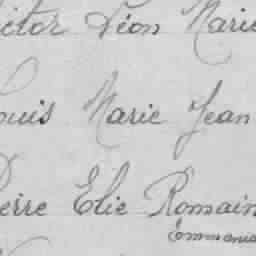 Victor Léon Marie
Louis Marie Jean
Pierre Elie Romain